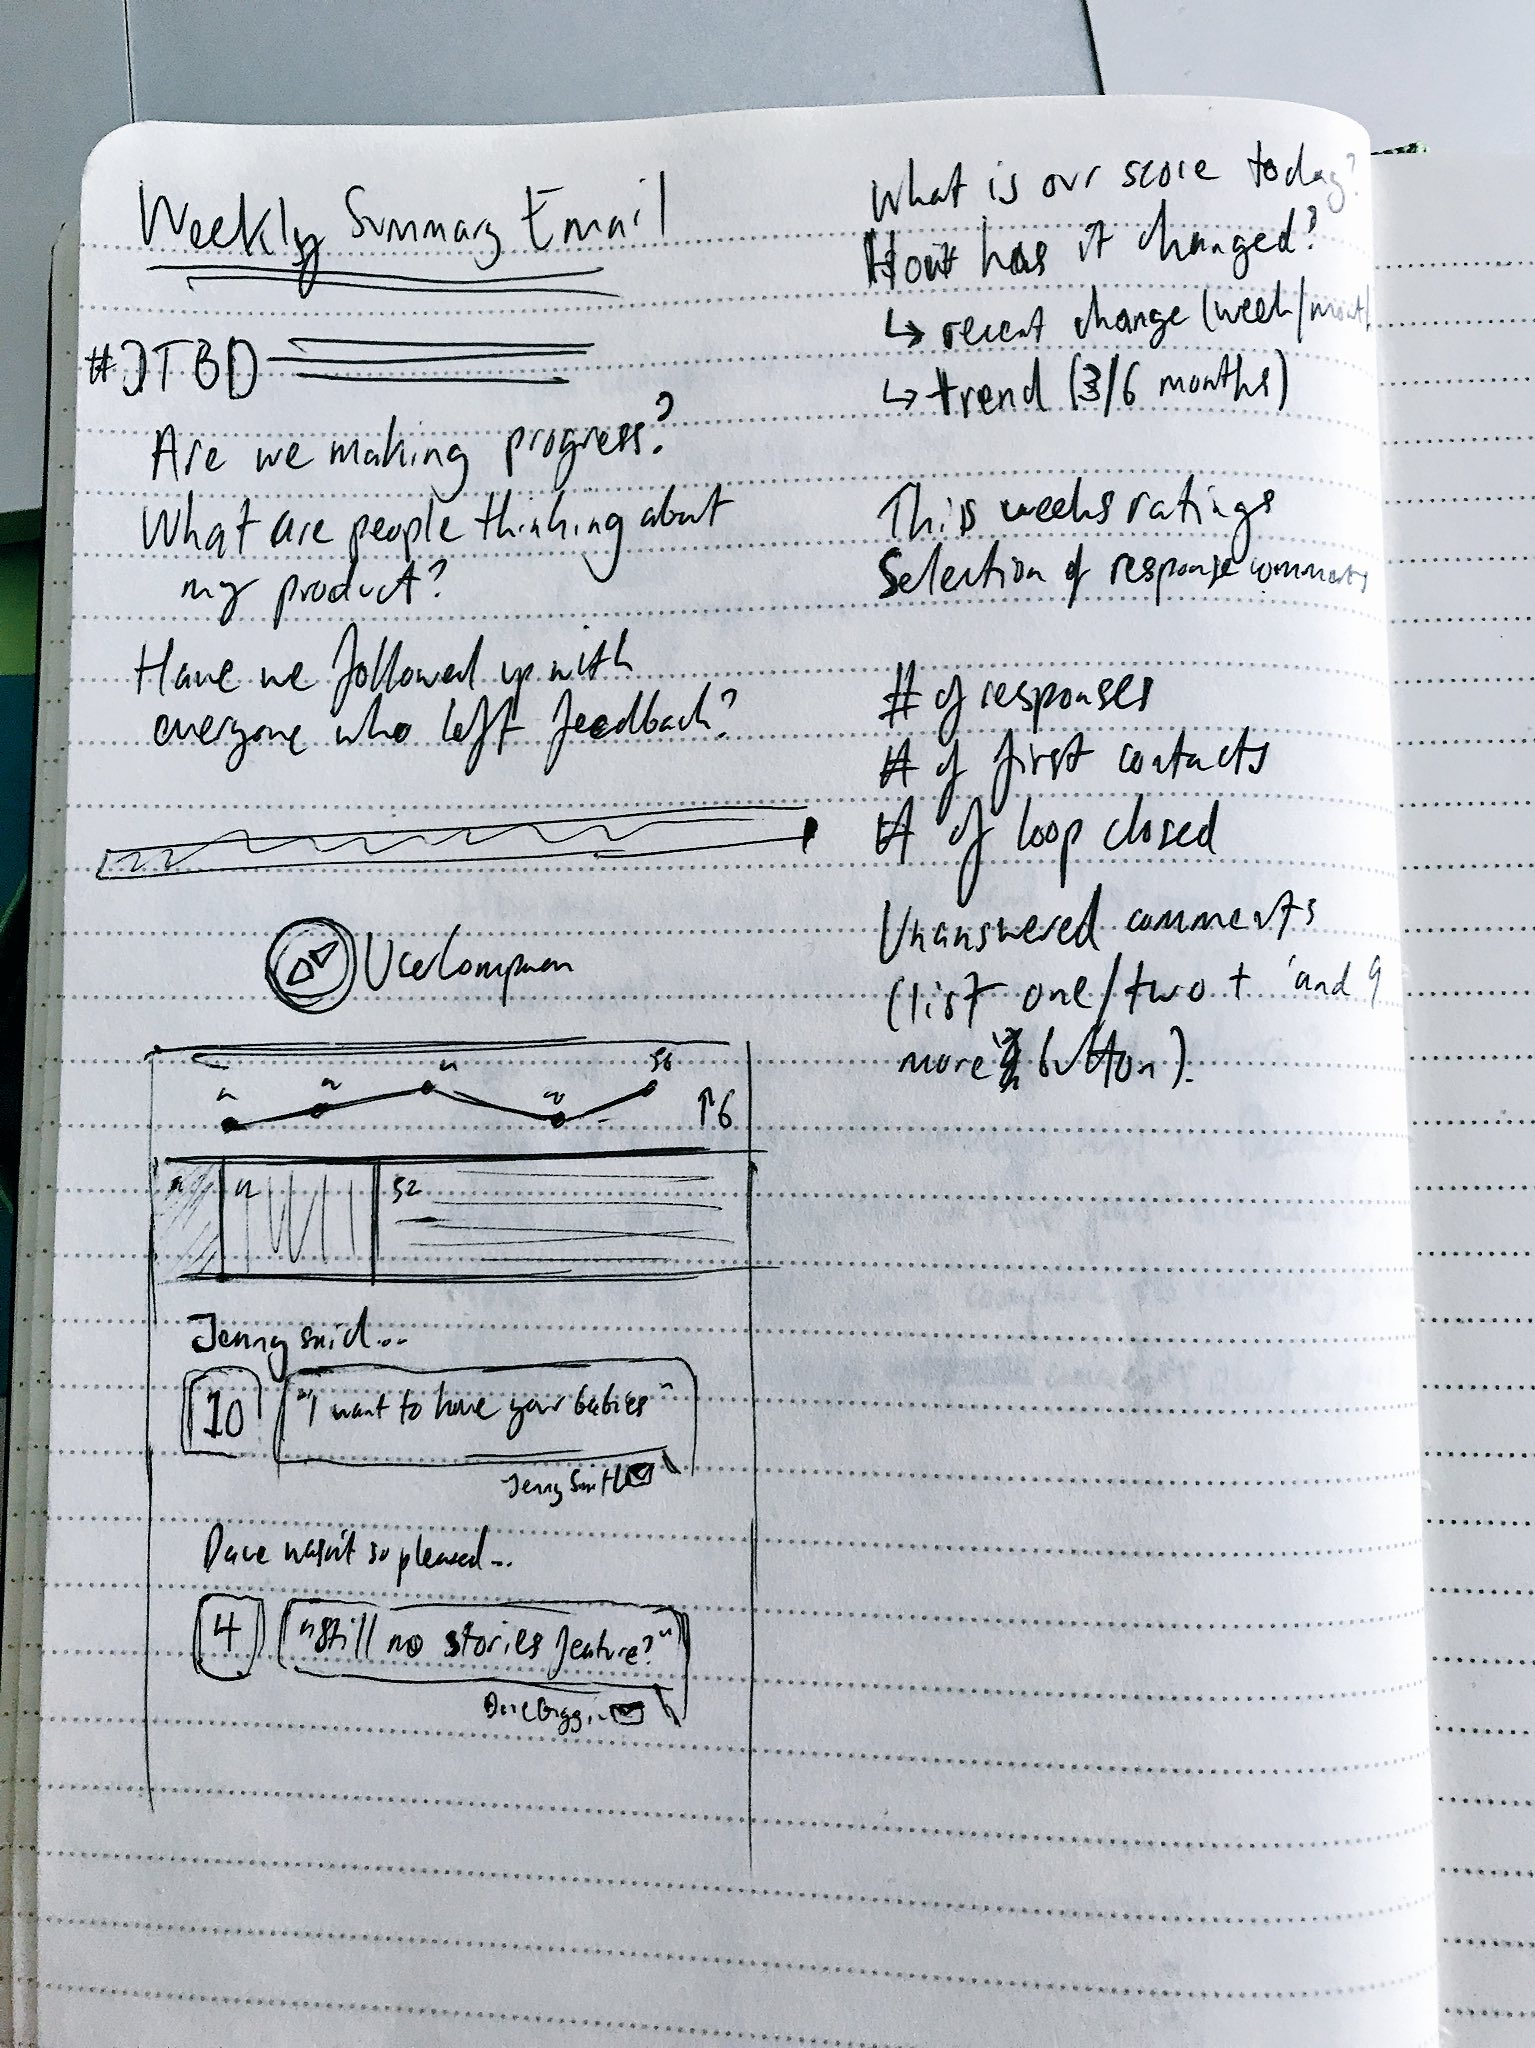 Weekly Summary Email
#JTBD
Are we making progress?
What are people thinking about
my product?
Have we followed up with
everyone who left feedback?
56
↑6
52
Jenny said...
10
"I want to have your babies"
Jenny Smith
Dave wasn't so pleased...
4
"Still no stories feature?"
What is our score today?
How has it changed?
↳ recent change (week/month
↳ trend (3/6 months)
This weeks ratings
Selection of response comments
# of responses
# of first contacts
# of loop closed
Unanswered comments
(list one/two + 'and 9
more' button).